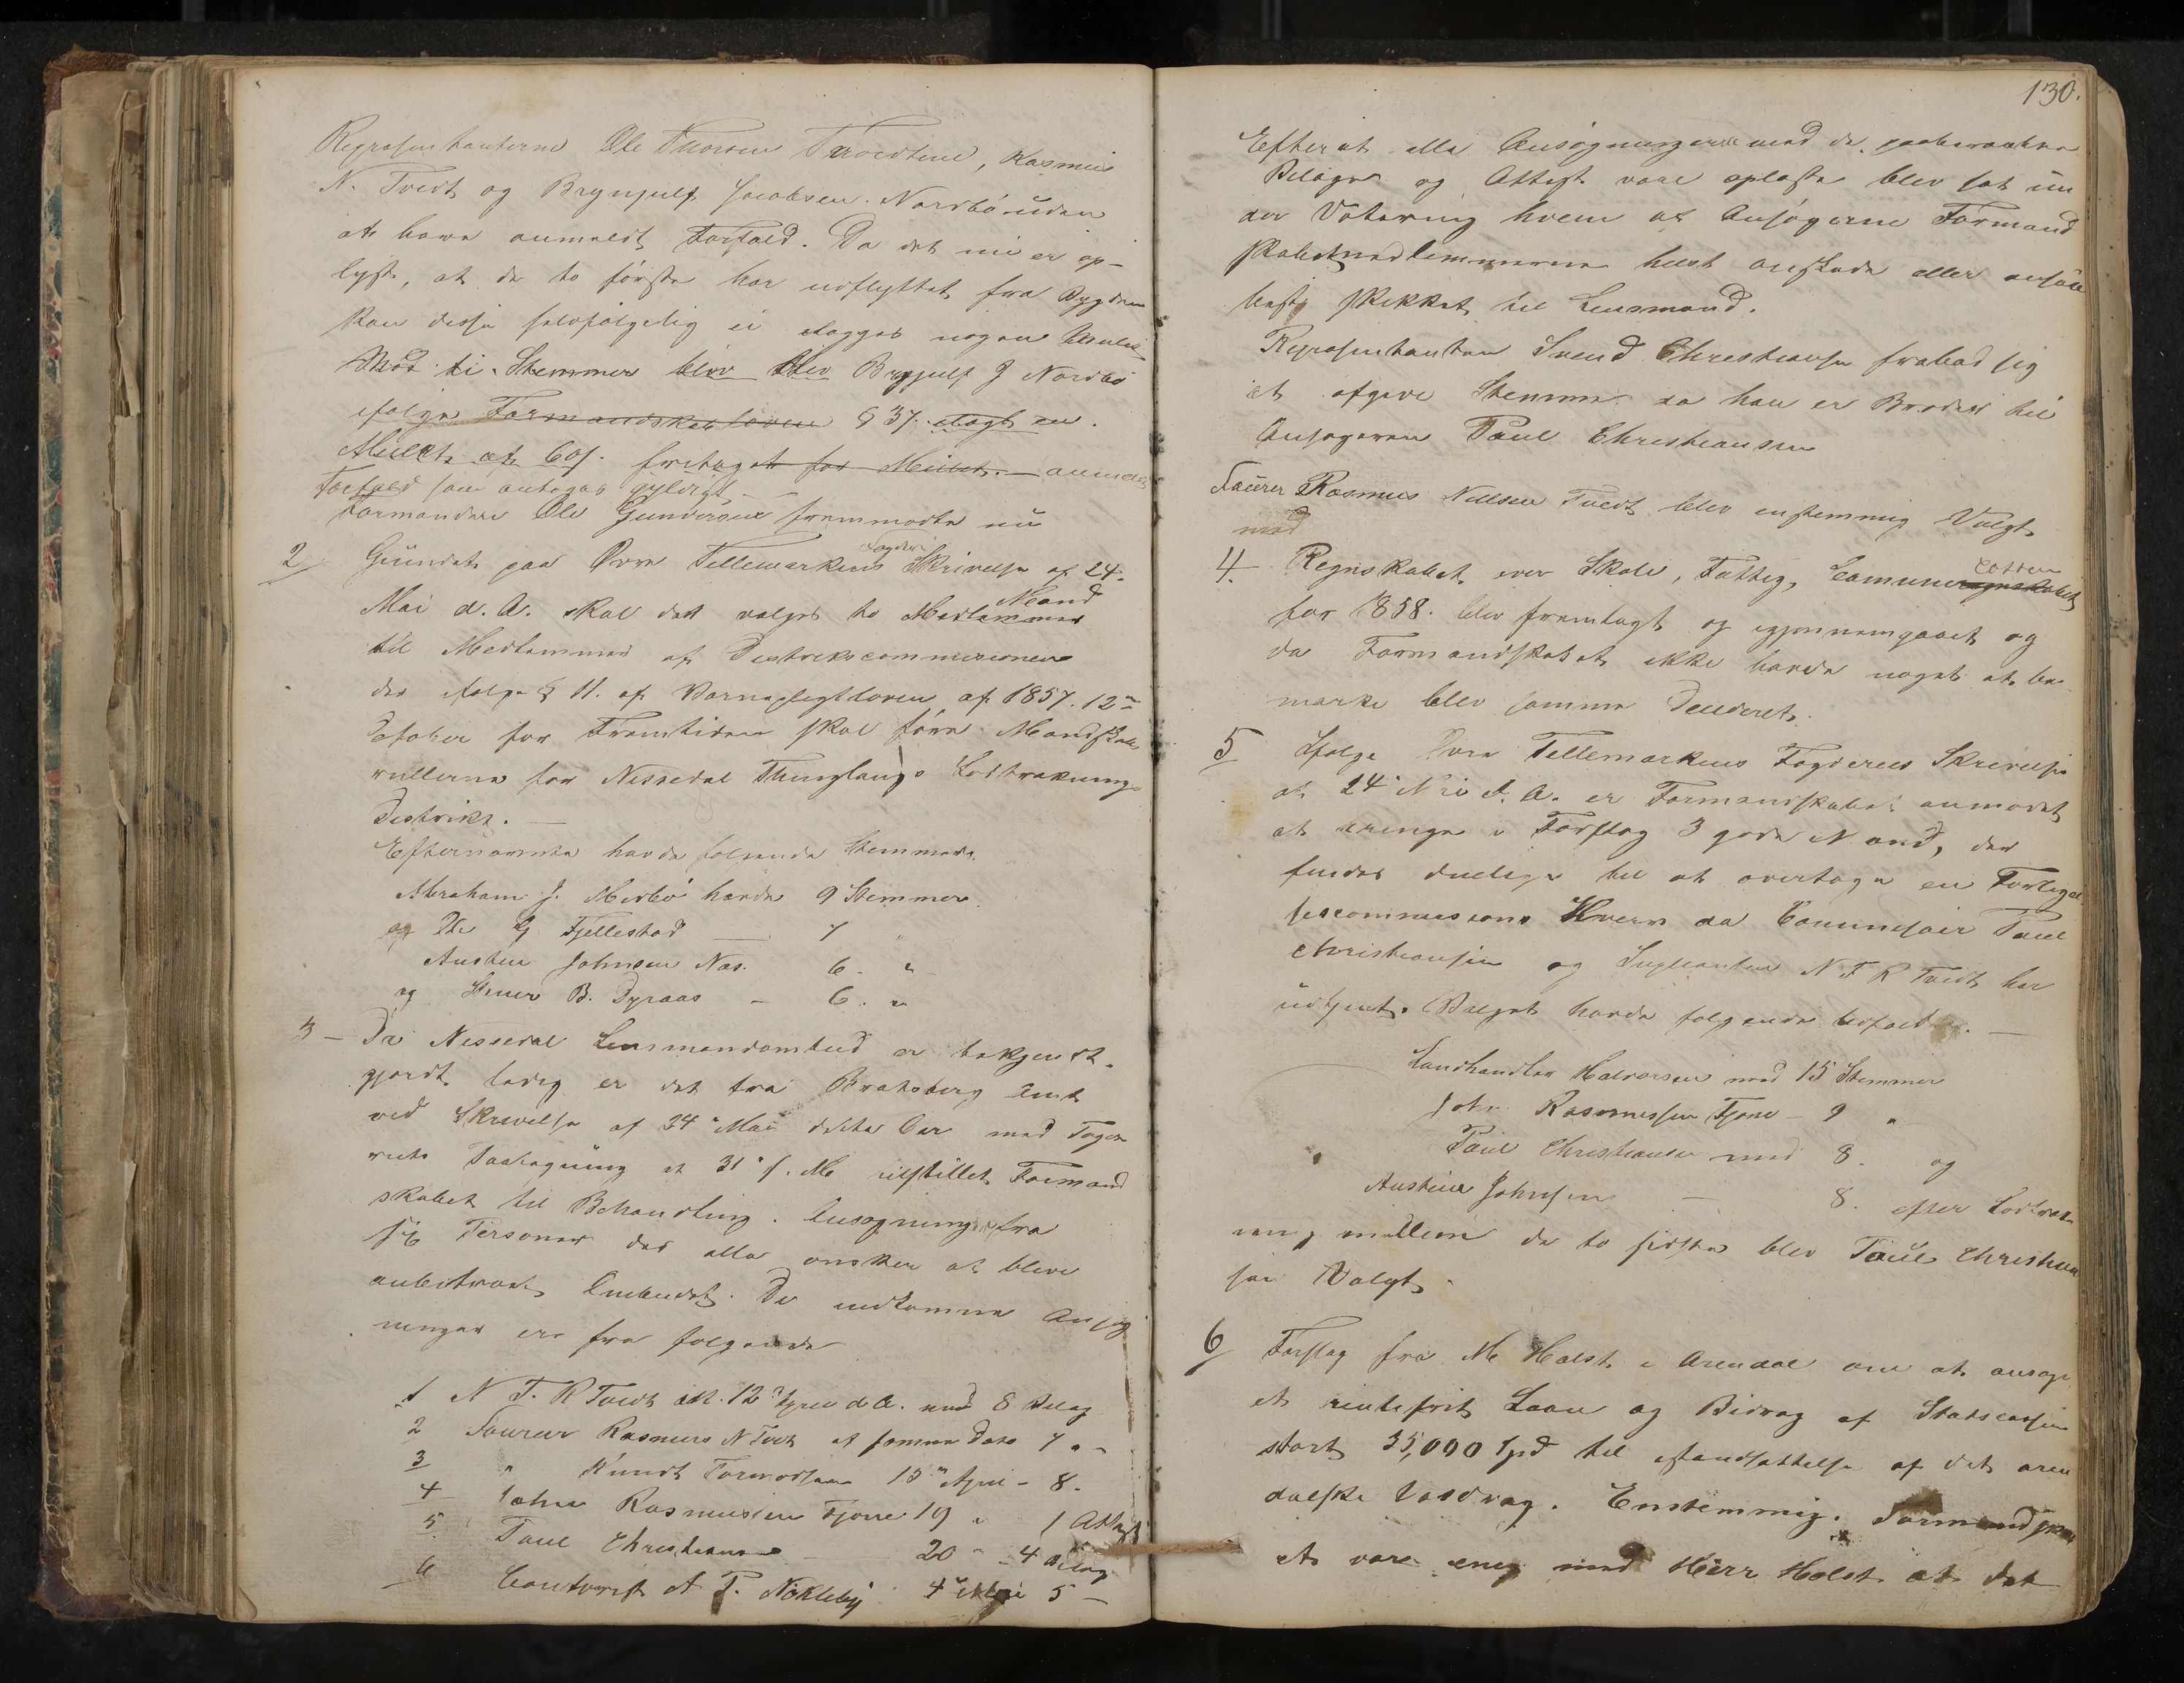 Repræsentanterne Ole Thorsen Træedtene, Rasmus
N. Tvedt og Brynjulf Jacobsen Nordbö uden
at have anmeldt Forfald. Da det nu er op-
lyst, at de to förste har udflyttet fra Bygden
kan disse selvfölgelig ei ilægges nogen Mulct
Mod ti Stemmer blev Brynjulf J Nordbö
ifölge Formandskabsloven § 37. ilagt en
Mulct af 60 s. fritaget for Mulct. — anmeldt
Forfald som antoges gyldigt
Formanden Ole Gundersen fremmödte nu
2 Grundet paa Övre Tellemarkens Fogderi Skrivelse af 24.
Mai d. A. skal det valges to Medlemmer Mænd
til Medlemmer af Districtscommissionen
der ifölge § 11. af Værnepligtloven af 1857. 12te
October for Fremtiden skal före Mandskabs
rullerne for Nissedal Thinglaugs Lodtrækning
Distrikt. —
Efternævnte havde fölgende Stemmer.
Abraham J. Mirbö havde 9 Stemmer.
og Ole G. Fjellestad — 7 "
Austen Johnsen Næs. 6. "
og Stener B. Dyraas — 6. "
3 — Da Nissedal Lensmandsombud er bekjendt-
gjordt ledig er det fra Bratsberg Amt
ved Skrivelse af 24 Mai dette Aar med Foge-
riets Paategning at 31 s. M. tilstillet Formand
skabet til Behandling. Ansögninger fra
sex Personer der alle önsker at blive
anbetroet Ombudet. De indkomne Ansög
ninger ere fra fölgende
1 N T. R Tvedt dat. 12 April d A. med 8 Bilag
2 Saurer Rasmus N Tvedt af samme Dato 7 " "
3 " Knudt Tarvodsen 15 April — 8.
4 John Rasmussen Fjone 19 " 1 Attest
5 Paul Christiansen 20 " — 4 Bilag
6 Contorist A P. Nökleby 4 Mai 5 —
130.
Efter at alle Ansögningerne med de paaberaabte
Bilager og Attest vare oplæste blev sat un
der Votering hvem af Ansögerne Formand
skabetsmedlemmerne helst önskede eller ansaae
bedst skikket til Lensmand.
Repræsentanten Svend Christiansen frabad sig
at afgive Stemme da han er Broder til
Ansögeren Paul Christiansen
Saurer Rasmus Nilsen Tvedt blev enstemmig Valgt.
med
4. Regnskabet over Skole, Fattig, Comuneregnskabet Cassen
for 1858. blev fremlagt og igjennemgaaet og
da Formandskabet ikke havde noget at be
mærke blev samme Decideret.
5 Ifölge Övre Tellemarkens Fogderies Skrivelse
at 24 Mai d. A. er Formandskabet anmodet
at bringe i Forslag 3 gode Mænd, der
findes duelige til at overtage en Forligel
sescommissions Hverv da Commisair Paul
Christiansen og Suppleanten N T R Tvedt har
udtjent. Valget havde fölgende Udfald. —
Landhandler Halvorsen med 15 Stemmer
John Rasmussen Fjone — 9 "
Paul Christiansen med 8. og
Austen Johnsen — 8. efter Lodtræk
ning mellem de to sidste blev Paul Christian
sen Valgt
6 Forslag fra M Holst i Arendal om at ansöge
et rentefrit Laan og Bidrag af Statscassen
stort 35,000 Spd til istandsættelse af det aren
dalske Vasdrag. Enstemmig. Formandskab
et vare enig med Herr Holst at det